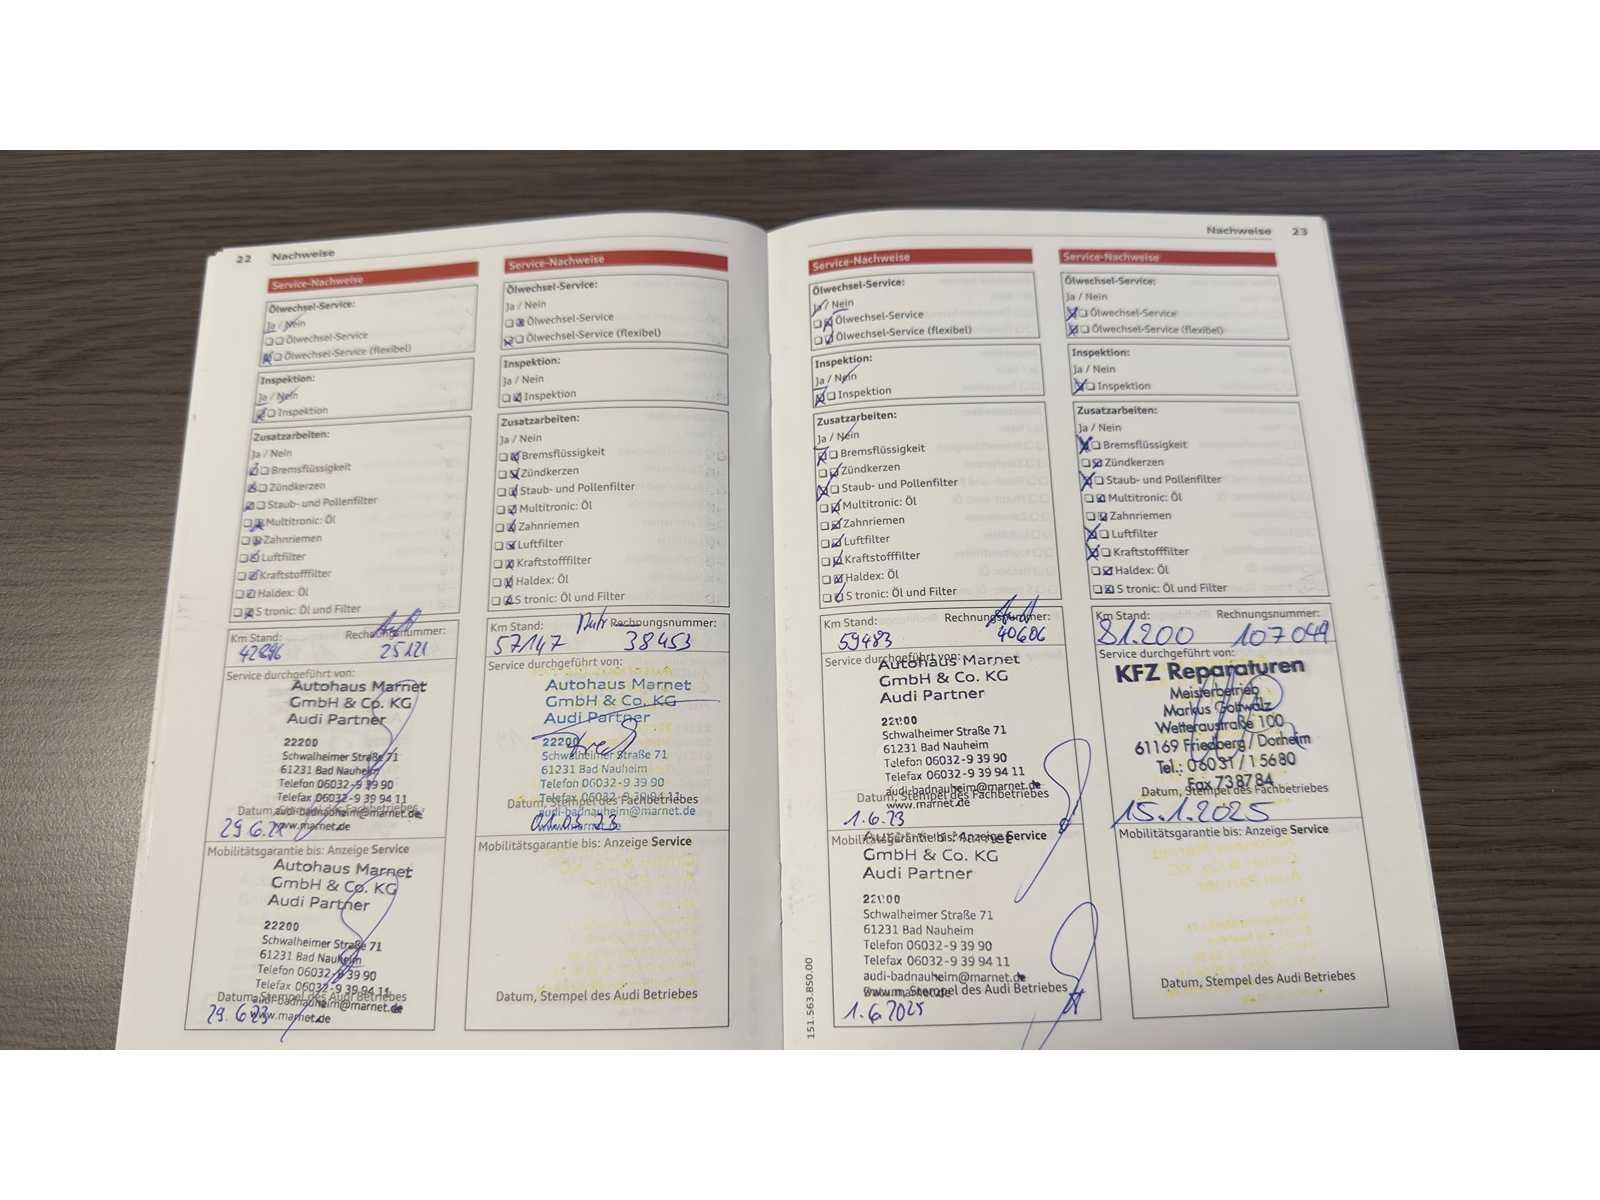 22 Nachweise
Service-Nachweise
Ölwechsel-Service:
Ja / Nein
Ölwechsel-Service
Ölwechsel-Service (flexibel)
Inspektion:
Ja / Nein
Inspektion
Zusatzarbeiten:
Ja / Nein
Bremsflüssigkeit
Zündkerzen
Staub- und Pollenfilter
Multitronic: Öl
Zahnriemen
Luftfilter
Kraftstofffilter
Haldex: Öl
S tronic: Öl und Filter
Km Stand: Rechnungsnummer:
25121
Service durchgeführt von:
Autohaus Marnet
GmbH & Co. KG
Audi Partner
22200
Schwalheimer Straße 71
61231 Bad Nauheim
Telefon 06032-9 39 90
Telefax 06032-9 39 94 11
Datum, Stempel des Fachbetriebes
audi-badnauheim@marnet.de
www.marnet.de
Mobilitätsgarantie bis: Anzeige Service
Autohaus Marnet
GmbH & Co. KG
Audi Partner
22200
Schwalheimer Straße 71
61231 Bad Nauheim
Telefon 06032-9 39 90
Telefax 06032-9 39 94 11
Datum, Stempel des Audi Betriebes
audi-badnauheim@marnet.de
www.marnet.de
Service-Nachweise
Ölwechsel-Service:
Ja / Nein
Ölwechsel-Service
Ölwechsel-Service (flexibel)
Inspektion:
Ja / Nein
Inspektion
Zusatzarbeiten:
Ja / Nein
Bremsflüssigkeit
Zündkerzen
Staub- und Pollenfilter
Multitronic: Öl
Zahnriemen
Luftfilter
Kraftstofffilter
Haldex: Öl
S tronic: Öl und Filter
Km Stand: Rechnungsnummer:
57147 38453
Service durchgeführt von:
Autohaus Marnet
GmbH & Co. KG
Audi Partner
22200
Schwalheimer Straße 71
61231 Bad Nauheim
Telefon 06032-9 39 90
Telefax 06032-9 39 94 11
Datum, Stempel des Fachbetriebes
audi-badnauheim@marnet.de
www.marnet.de
01.03.23
Mobilitätsgarantie bis: Anzeige Service
Datum, Stempel des Audi Betriebes
Nachweise 23
Service-Nachweise
Ölwechsel-Service:
Ja / Nein
Ölwechsel-Service
Ölwechsel-Service (flexibel)
Inspektion:
Ja / Nein
Inspektion
Zusatzarbeiten:
Ja / Nein
Bremsflüssigkeit
Zündkerzen
Staub- und Pollenfilter
Multitronic: Öl
Zahnriemen
Luftfilter
Kraftstofffilter
Haldex: Öl
S tronic: Öl und Filter
Km Stand: Rechnungsnummer:
59483 40606
Service durchgeführt von:
Autohaus Marnet
GmbH & Co. KG
Audi Partner
22200
Schwalheimer Straße 71
61231 Bad Nauheim
Telefon 06032-9 39 90
Telefax 06032-9 39 94 11
audi-badnauheim@marnet.de
Datum, Stempel des Fachbetriebes
www.marnet.de
1.6.23
Mobilitätsgarantie bis: Anzeige Service
Autohaus Marnet
GmbH & Co. KG
Audi Partner
22200
Schwalheimer Straße 71
61231 Bad Nauheim
Telefon 06032-9 39 90
Telefax 06032-9 39 94 11
audi-badnauheim@marnet.de
Datum, Stempel des Audi Betriebes
www.marnet.de
1.6.2025
151.563.8S0.00
Service-Nachweise
Ölwechsel-Service:
Ja / Nein
Ölwechsel-Service
Ölwechsel-Service (flexibel)
Inspektion:
Ja / Nein
Inspektion
Zusatzarbeiten:
Ja / Nein
Bremsflüssigkeit
Zündkerzen
Staub- und Pollenfilter
Multitronic: Öl
Zahnriemen
Luftfilter
Kraftstofffilter
Haldex: Öl
S tronic: Öl und Filter
Km Stand: Rechnungsnummer:
81.200 107049
Service durchgeführt von:
KFZ Reparaturen
Meisterbetrieb
Markus Gottwalz
Wetteraustraße 100
61169 Friedberg / Dorheim
Tel.: 06031/15680
Fax 738784
Datum, Stempel des Fachbetriebes
15.1.2025
Mobilitätsgarantie bis: Anzeige Service
Datum, Stempel des Audi Betriebes